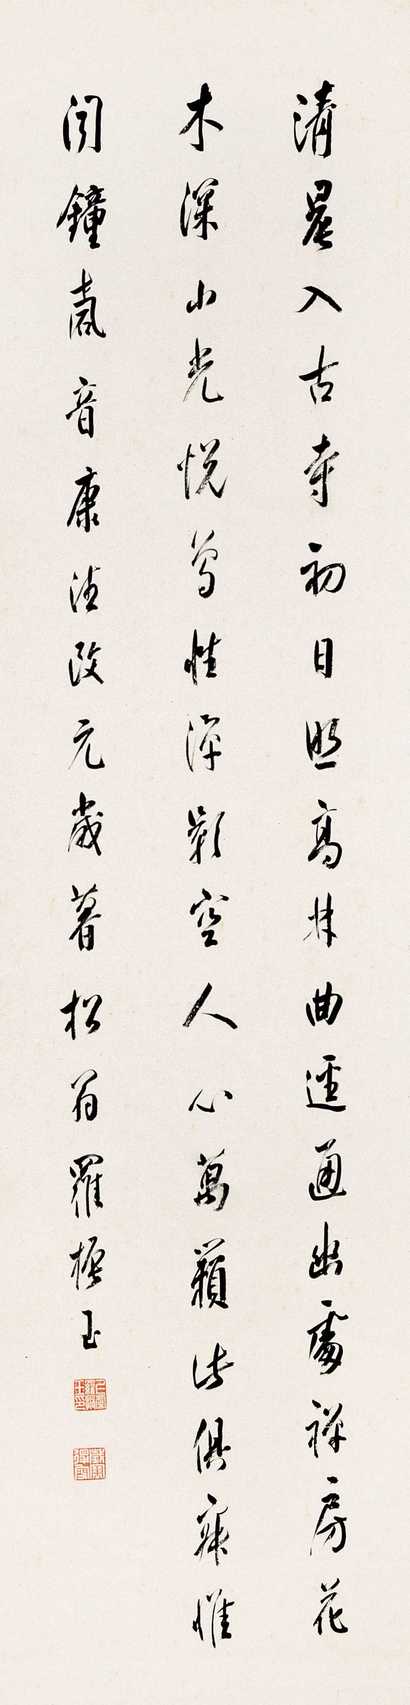 清晨入古寺初日照高林曲逕通幽處禅房花
木深山光悦鸟性潭影空人心萬籟此俱寂惟
闻鐘磬音康德改元歲暮松翁羅振玉